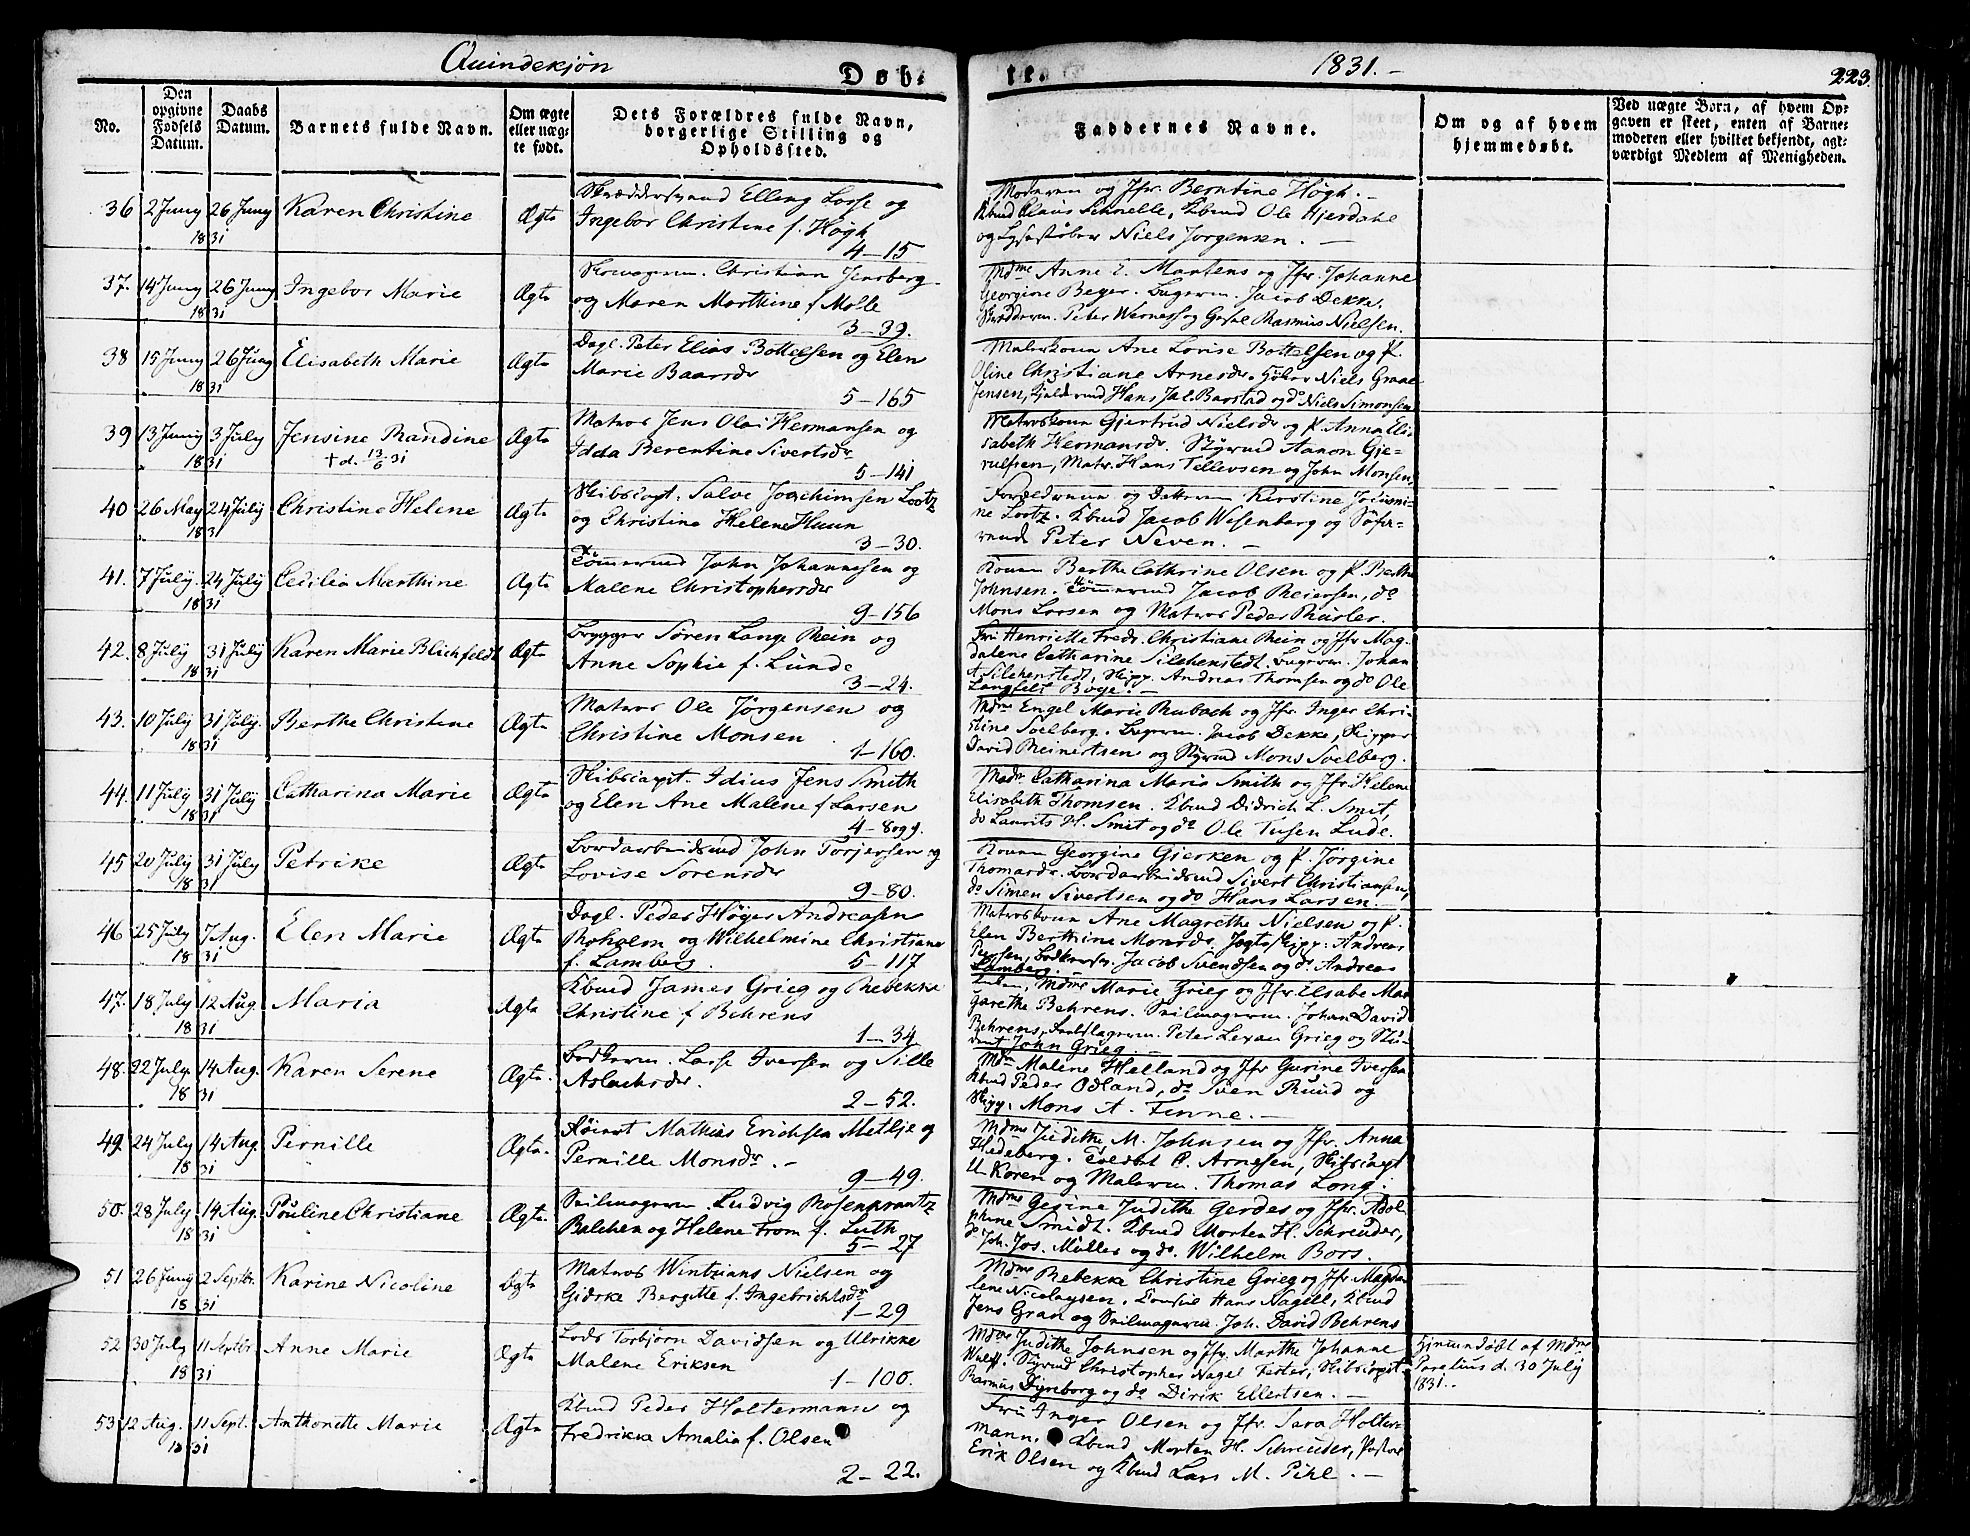 Quindekjøn
Døb-
te.
1831.-
223.
No.
Den opgivne Fødsels Datum.
Daabs Datum.
Barnets fulde Navn.
Om ægte eller uæg-
te født.
Dets Forældres fulde Navn,
borgerlige Stilling og
Opholdssted.
Faddernes Navne.
Om og af hvem
hjemmedøbt.
Ved uægte Børn, af hvem Op-
gaven er skeet, enten af Barne-
moderen eller hvilket bekjendt, agt-
værdigt Medlem af Menigheden.
36 2 Juny 26 Juny Karen Christine Ægte
1831
Elling Lasse og
Ingebor Christine f. Høgh
4-15
Moderen og Jfr. Berntine Høgh.-
Kbmd Claus Schnelle, Kbmd Ole Hjerdahl
og Lysestøber Niels Jørgensen. -
37. 14 Juny 26 Juny Ingebor Marie Ægte
1831
Christian Jensberg
og Maren Marthine f Molle
3-39.
Mdme Anne E. Martens og Jfr. Johanne
Georgine Beyer. Jacob Dekke,
Peter Werness og Rasmus Nielsen.
38 15 Juny 26 Juny Elisabeth Marie Ægte
1831
Dagl. Peter Elias Bottelsen og Elen
Marie Baarsdr
5-165
Ane Lovise Bottelsen og P.
Oline Christiane Arnesdr. Niels Graae
Jensen, Hans Jac. Barstad og do Niels Simonsen
39 13 Juny 3 July Jensine Randine Ægte
1831 † d. 13/6 31
Matros Jens Olai Hermansen og
Idda Berentine Sivertsdr
5-141
Matroskone Gjertrud Nielsdr og P. Anna Eli-
sabeth Hermansdr. Styrmd Aanon Gje-
rulfsen, Matr. Hans Tellevsen og John Monsen
40 26 May 24 July Christine Helene Ægte
1831
Skibscapt. Salve Joachimsen Lootz
og Christine Helene Huun
3-30.
Forældrene og Kirstine
Lootz. Kbmd Jacob Wesenberg og
Peter Neven. -
41. 7 July. 24 July Cecilia Marthine Ægte
1831
Tømmermd John Johannesen og
Malene Christophersdr
9-156
Konen Berthe Cathrine Olsen og P. Berthe
Johnsen. Tømmermd Jacob Reiersen, do
Mons Larsen og Matros Peder
42. 8 July 31 July Karen Marie Blichfeldt Ægte
1831
Brygger Søren Lange Rein og
Anne Sophie f. Lunde
3-24.
Fru Henriette Fredr. Christiane Rein og Jfr Mag-
dalene Catharine Silchenstedt. Johan
A Silchenstedt, Skipp. Andreas Thomsen og do Ole
Langfelt Boye. -
43. 10 July 31 July. Berthe Christine Ægte
1831
Matros Ole Jørgensen og
Christine Monsen
1-160.
Mdme Engel Marie Rubach og Jfr. Inger Chri-
stine Soelberg. Jacob Dekke, Skipper
David Reinertsen og Styrmd Mons Soelberg.
44. 11 July 31 July Catharina Marie Ægte
1831
Skibscapt. Idius Jens Smith
og Elen Ane Malene f Larsen
4-8 og 9.
Madm Catharina Maria Smith og Jfr Helene
Elisabeth Thomsen. Kbmd Didrich L. Smit,
do Laurits H. Smit og do Ole Tusen Lude.
45 20 July 31 July Petrike Ægte
1831
Bordarbeidsmd John Torjersen og
Lovise Sørensdr
9-80.
Konen Georgine Gjerken og P. Jørgine
Thomasdr. Bordarbeidsmd Sivert Christiansen,
do Simen Sivertsen og do Hans Larsen.-
46 25 July 7 Aug. Elen Marie Ægte
1831
Dagl. Peder Høyer Andreasen
Roholm og Wilhelmine Christiane
f. Lamberg. 5-117
Matroskone Ane Magrethe Nielsen og P.
Elen Berthine Monsdr. Jagteskipp. Andreas
Jacob Svendsen og do Andreas
Lamberg.
47. 18 July 12 Aug. Maria Ægte
1831
Kbmd James Grieg og Rebekka
Christine f Behrens
1-34
Mdme Marie Grieg og Jfr Elsabe Mar-
garethe Behrens. Seilmagerm. Johan David
Behrens, Peter Lexau Grieg og Stu-
dent John Grieg. -
48. 22 July. 14 Aug. Karen Serene Ægte.
1831
Lasse Iversen og Sille
Aslachsdr.
2-52.
Mdm Malene Helland og Jfr Gurine Iversen
Kbmd Peder Odland, do Sven Ruud og
Skipp. Mons A. Finne. -
49. 24 July 14 Aug. Pernille Ægte.
1831
Mathias Erichsen Meltzje og
Pernille Monsdr. -
9-49.
Mdme Judithe M. Johnsen og Jfr. Anna
Hedeberg. C. Arnesen, Skibscapt
U. Koren og Malerm. Thomas Long.
50. 28 July 14 Aug. Pouline Christiane Ægte.
1831
Seilmagerm. Ludvig Rosenkrantz
Balchen og Helene From f. Luth
5-27
Mdme Gesine Judithe Gerdes og Jfr. Adol-
phine Smidt. Kbmd Morten H. Schreuder,
do Joh. Jos. Müller og do. Wilhelm Bors.
51 26 Juny 2 Septbr. Karine Nicoline Ægte
1831
Matros Nielsen og
Gjerke Bergitte f. Ingebrichtsdr
1-29
Mdme Rebekke Christine Grieg og Jfr Magda-
lene Nicolaysen. Consul Hans Nagell, Kbmd
Jens Gran og Seilmagerm. Joh. David Behrens
52 30 July 11 Septbr. Anne Marie Ægte
1831
Lods Torbjørn Davidsen og Ulrikke
Malene Eriksen
1-100.
Mdme Judithe Johnsen og Jfr. Marthe Johanne
Wulff. Styrmd Christopher Nagel Fester, Skibscapt
Rasmus Dyreborg og do Dirik Ellertsen. -
Hjemmedøbt af Mdme
d. 30 July
1831.-
53 12 Aug. 11 Sept. Anthonette Marie Ægte
1831
Kbmd Peder Holtermann og
Fredrikke Amalia f. Olsen
2-22.
Fru Inger Olsen og Jfr. Sara Holter-
mann. Kbmd Morten H. Schreuder, Pastor
Erik Olsen og Kbmd Lars M. Pihl. -